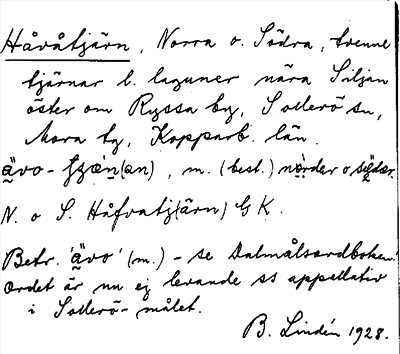 Håvåtjärn, Norra o. Södra, tvenne
tjärnar l. laguner nära Siljan
öster om Ryssa by, Sollerö sn,
Mora tg, Kopparb. län.
ävo-              (an), m. (best.) nørdær o
N. o S. Håfvatj(ärn) GK.
Betr. 'ävo' (m.) - se Dalmålsordboken!
Ordet är nu ej levande ss appellativ
i Sollerö-målet.
B. Lindén 1928.